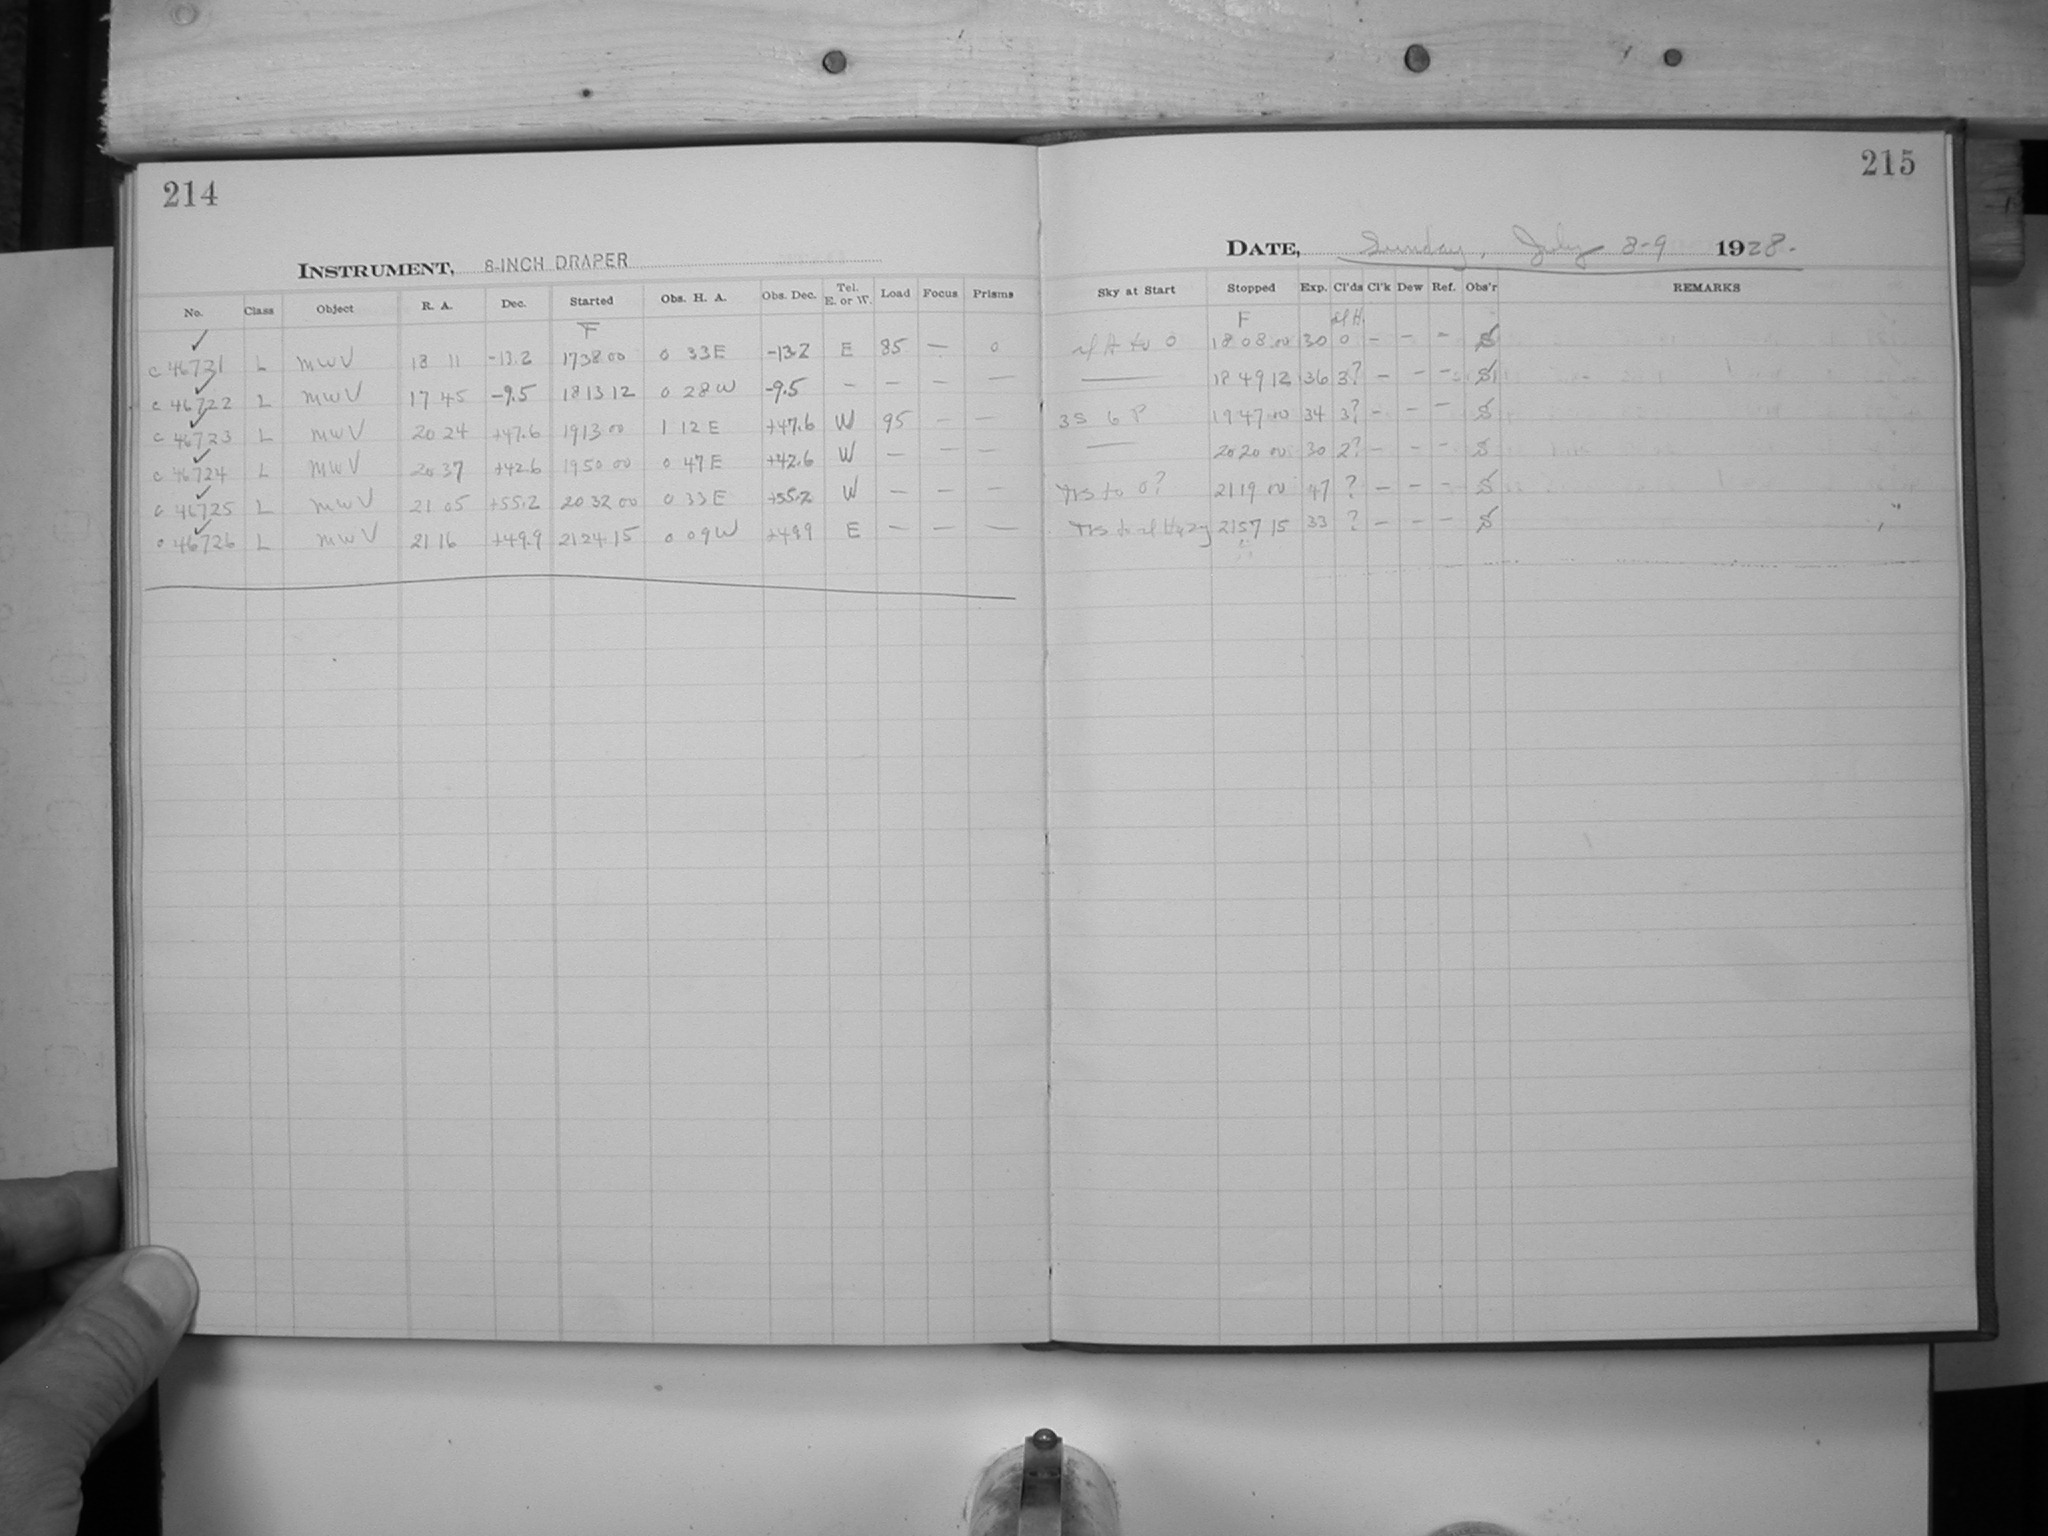 214
INSTRUMENT, 8-INCH DRAPER
No. Class Object R. A. Dec. Started Obs. H. A. Obs. Dec. Tel. E. or W. Load Focus Prisms
F
c 46721 L MWV 18 11 -13.2 17 38 00 0 33 E -13.2 E 85 — 0
c 46722 L MWV 17 45 -9.5 18 13 12 0 28 W -9.5 — — — —
c 46723 L MWV 20 24 +47.6 19 13 00 1 12 E +47.6 W 95 — —
c 46724 L MWV 20 37 +42.6 19 50 00 0 47 E +42.6 W — — —
c 46725 L MWV 21 05 +55.2 20 32 00 0 33 E +55.2 W — — —
c 46726 L MWV 21 16 +49.9 21 24 15 0 09 W +49.9 E — — —
215
DATE, Sunday, July 8-9 1928.
Sky at Start Stopped Exp. Cl'ds Cl'k Dew Ref. Obs'r REMARKS
F
to 0 18 08 00 30 0 — — — S
— 18 49 12 36 3? — — — S
3S 6P 19 47 00 34 3? — — — S
— 20 20 00 30 2? — — — S
to 0? 21 19 00 47 ? — — — S
Hazy 21 57 15 33 ? — — — S